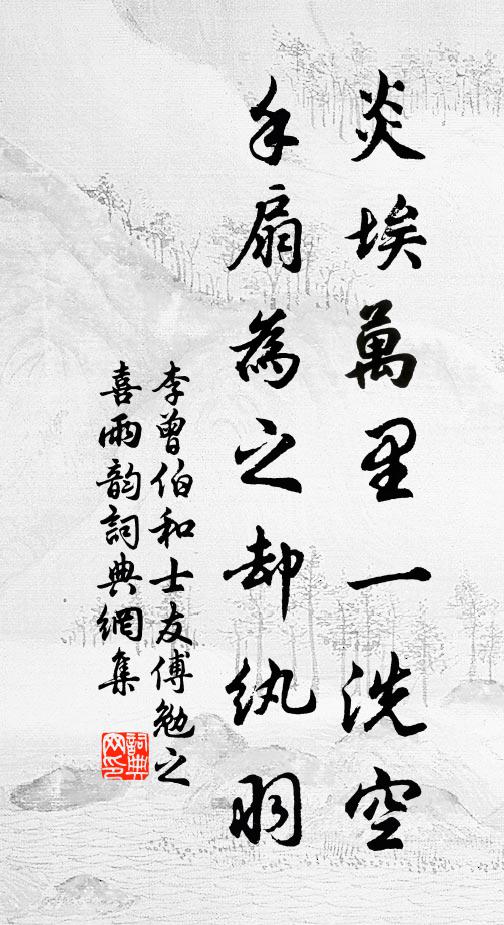 炎埃萬里一洗空
手扇為之却紈羽
李曾伯和士友傅勉之
喜雨韵詞典網集
詞典网印